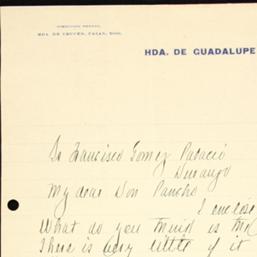 DIRECCION POSTAL
HDA. DE CRUCES, CAZAN, DGO.
HDA. DE GUADALUPE
Sr Francisco Gomez Palacio
Durango
My dear Don Pancho
I enclose
What do you think is the
There is very little of it